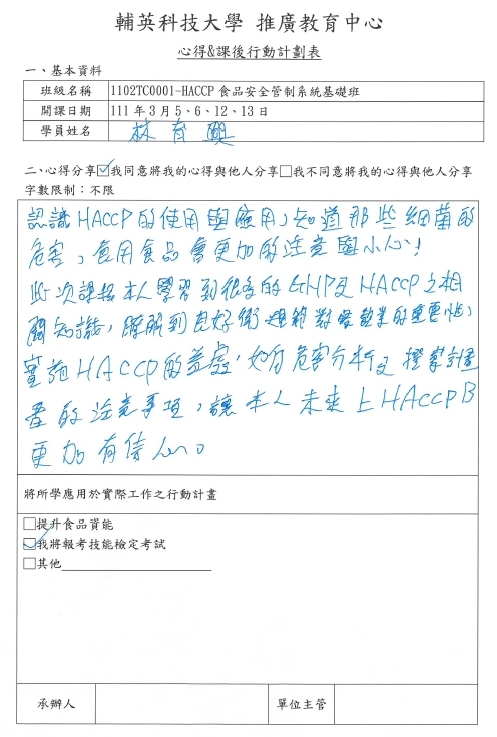 輔英科技大學 推廣教育中心
心得&課後行動計劃表
一、基本資料
班級名稱 1102TC0001-HACCP 食品安全管制系統基礎班
開課日期 111 年 3 月 5、6、12、13 日
學員姓名 林育
二、心得分享☑我同意將我的心得與他人分享□我不同意將我的心得與他人分享
字數限制：不限
認識HACCP的使用與應用，知道那些細菌的
危害，食用食品會更加的注意與小心！
此次課程本人學習到很多的GHP及HACCP之相
關知識，瞭解到良好衛生規範對餐飲業的重要性，
實施HACCP的益處，如有危害分析及撰寫計畫
書的注意事項，讓本人未來上HACCPB
更加有信心。
將所學應用於實際工作之行動計畫
□提升食品資能
☑我將報考技能檢定考試
□其他
承辦人 單位主管